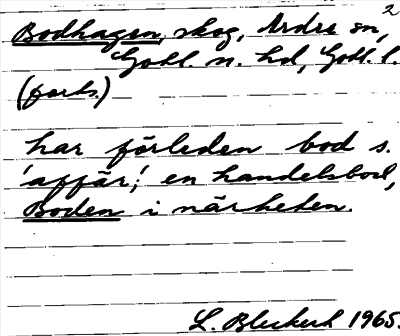 2
Bodhagen, skog, Ardre sn,
Gotl. n. hd, Gotl. l.
(forts.)
har förleden bod s.
'affär'; en handelsbod,
Boden i närheten.
L. Bleckert 1965.